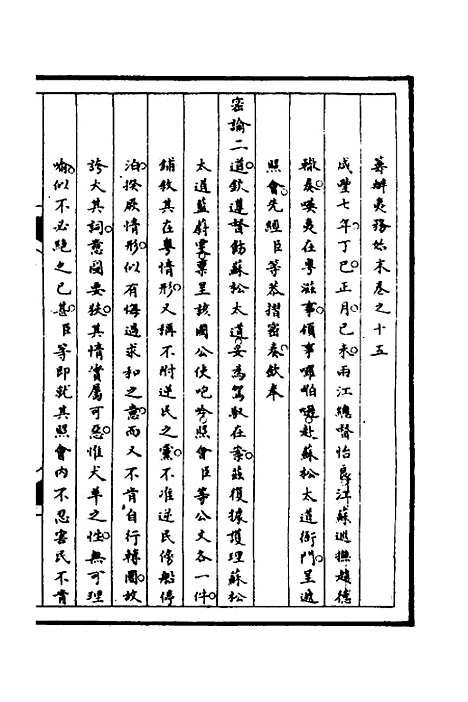 籌辦夷務始末卷之十五
咸豐七年丁巳正月己未兩江總督怡良江蘇巡撫趙德
轍奏嘆夷在粵滋事領事囉伯遜赴蘇松太道衙門呈遞
照會先經臣等恭摺密奏欽奉
密諭二道欽遵督飭蘇松太道妥為駕馭在案茲復據護理蘇松
太道藍蔚雯稟呈該國公使咆呤照會臣等公文各一件
鋪敘其在粵情形又稱不附逆民之黨不准逆民傍船停
泊揆厥情形似有悔過求和之意而又不肯自行轉圜故
誇大其詞意圖要挾其情實屬可惡惟犬羊之性無可理
喻似不必絕之已甚臣等即就其照會內不忍害民不肯